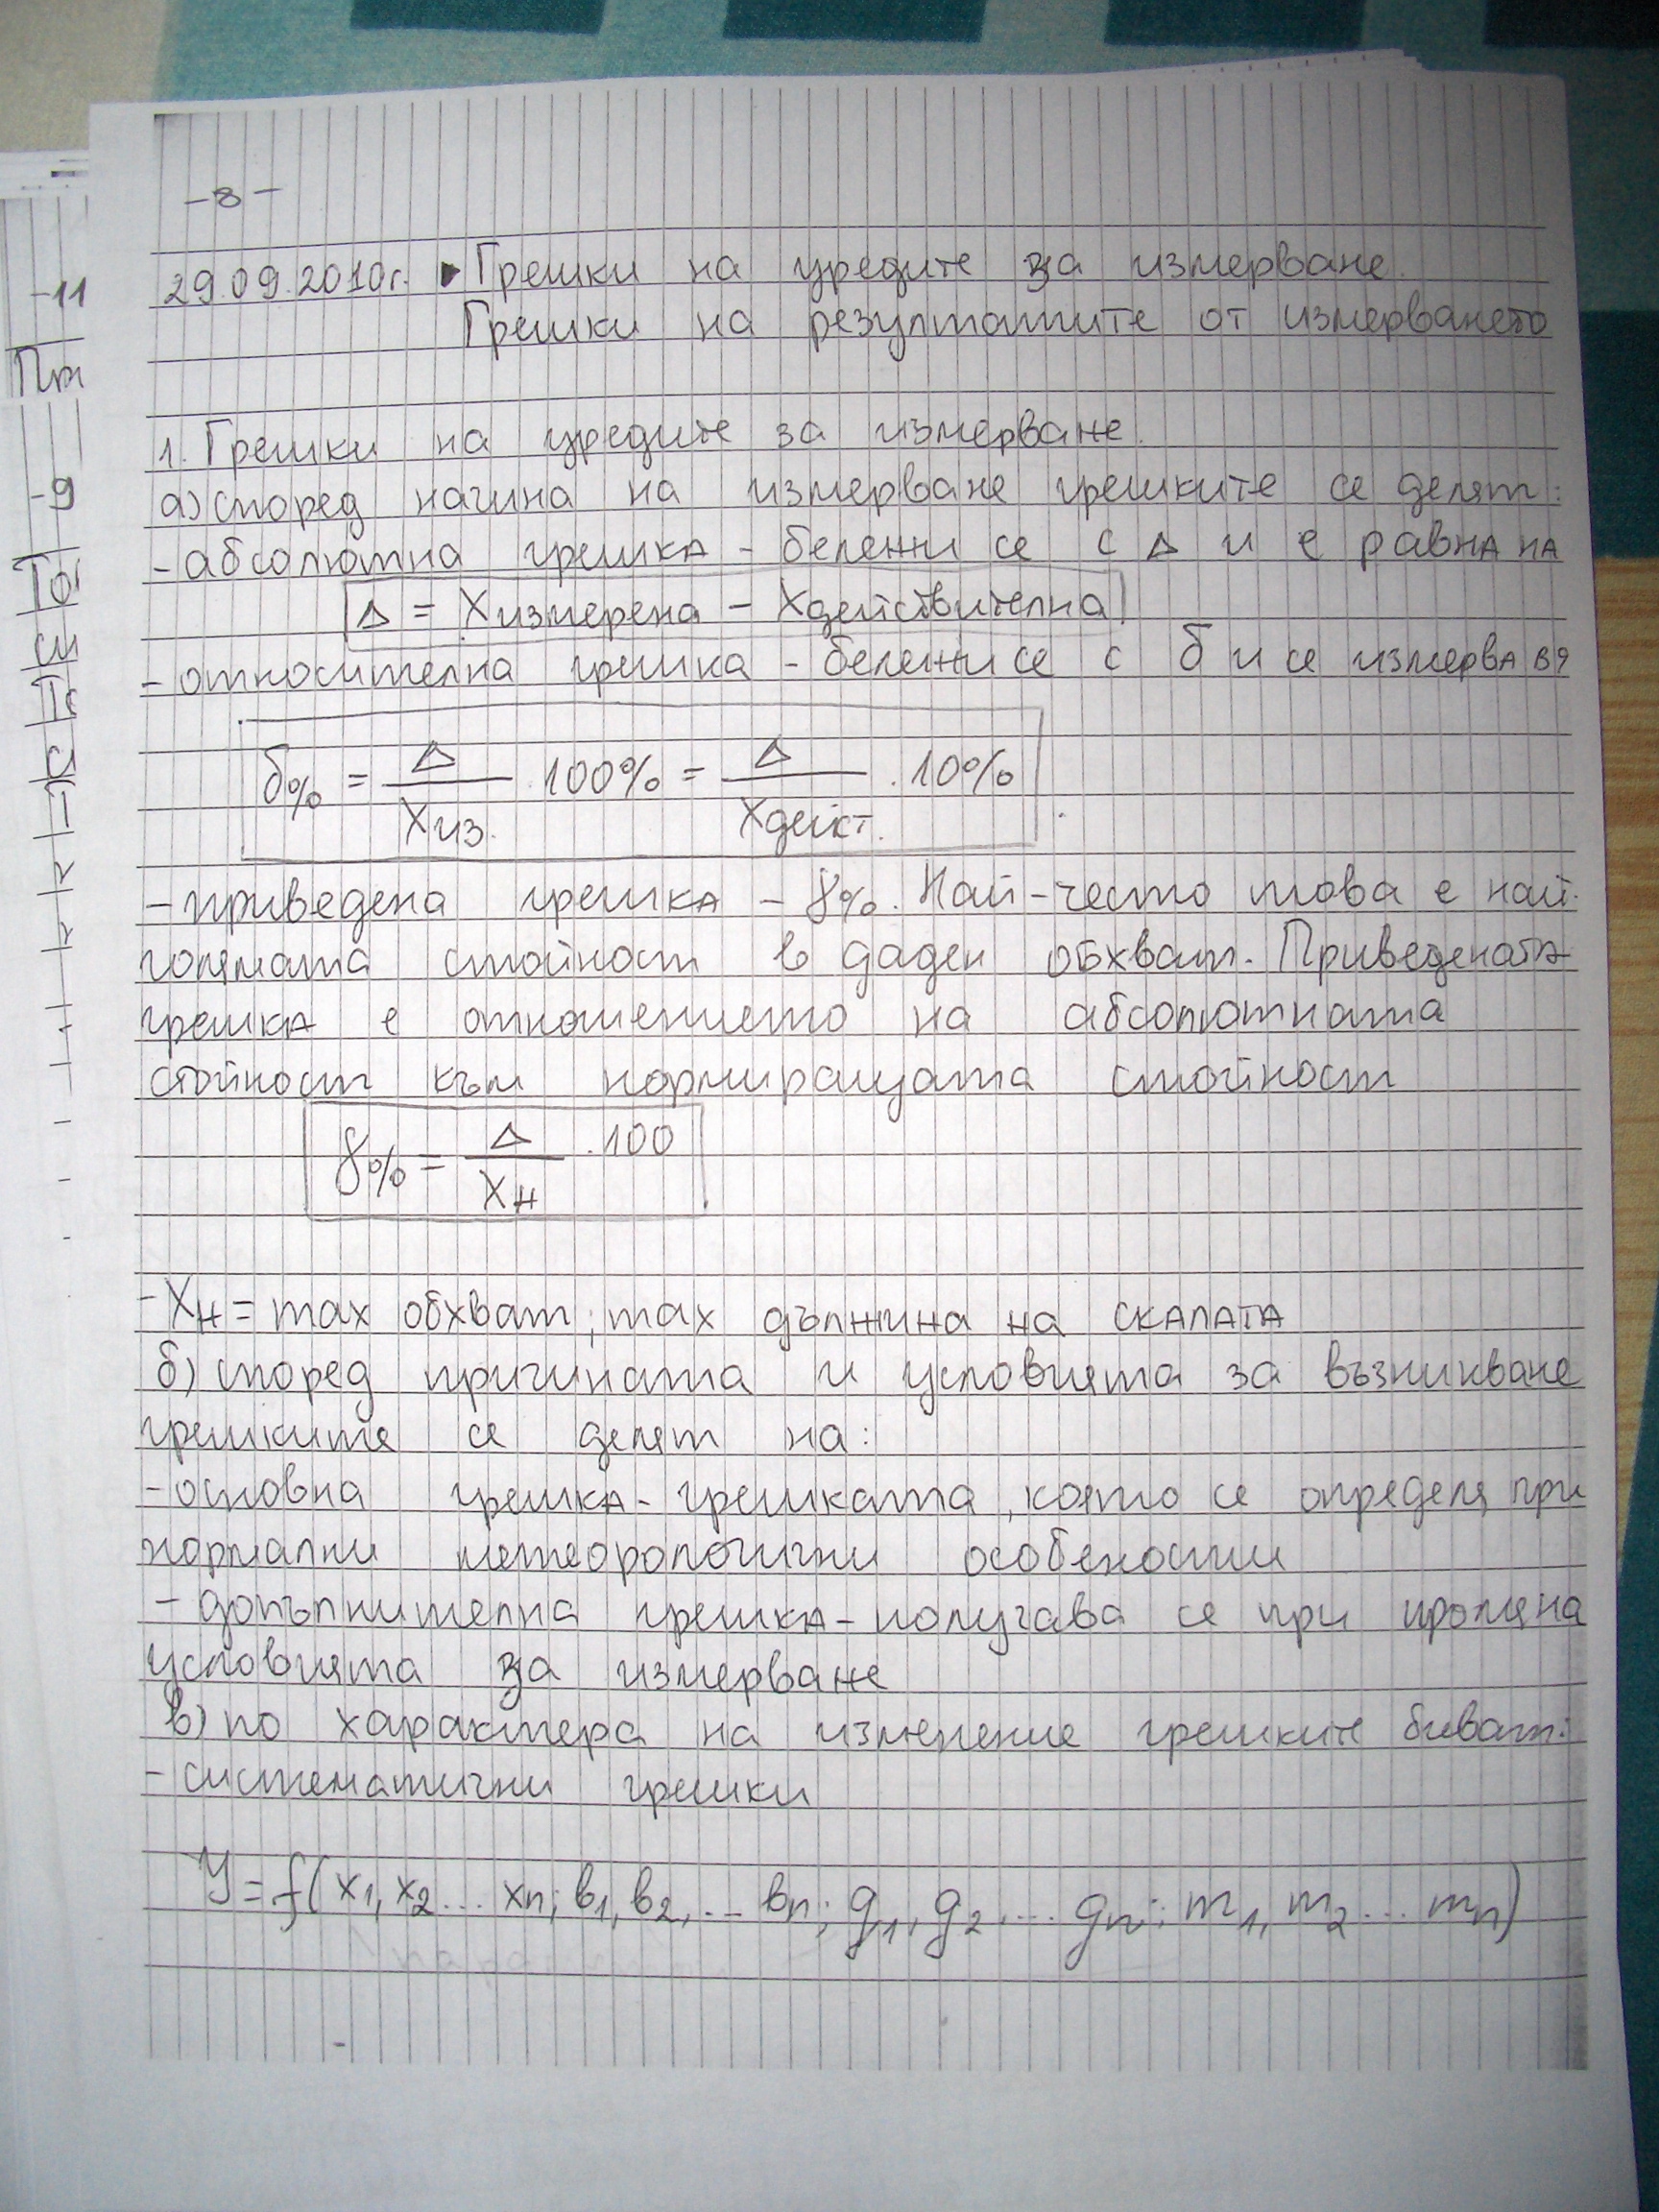 -8-
29.09.2010г. ▶Грешки на уредите за измерване.
Грешки на резултатите от измерването
1. Грешки на уредите за измерване.
а) според начина на измерване грешките се делят:
- абсолютна грешка - бележи се с Δ и е равна на
Δ = Xизмерена - Xдействителна
- относителна грешка - бележи се с б и се измерва в %
б% = Δ/Xиз. . 100% = Δ/Xдейст. . 10%
- приведена грешка - γ%. Най-често това е най-
голямата стойност в даден обхват. Приведената
грешка е отношението на абсолютната
стойност към нормиращата стойност
γ% = Δ/Xн . 100
- Xн = max обхват; max дължина на скалата
б) според причината и условията за възникване
грешките се делят на:
- основна грешка - грешката, която се определя при
нормални метеорологични особености
- допълнителна грешка - получава се при промяна
условията за измерване
в) по характера на изменение грешките биват:
- систематични грешки
y = f(x1, x2 ... xn; в1, в2, ... вn; g1, g2, ... gn; m1, m2 ... mn)
-11
При
-9